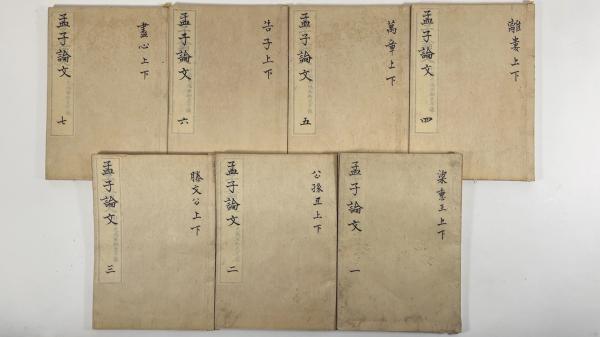 孟子論文
七
盡心上下
孟子論文
六
告子上下
孟子論文
五
萬章上下
孟子論文
四
離婁上下
孟子論文
三
滕文公上下
孟子論文
二
公孫丑上下
孟子論文
一
梁惠王上下